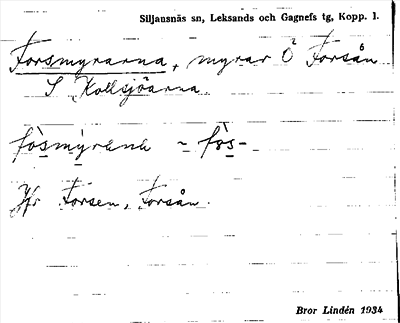 Siljansnäs sn, Leksands och Gagnefs tg, Kopp. l.
Forsmyrarna, myrar Ö Forsån
S Kollsjöarna.
fòsmyrana ~ fòs-
Jfr Forsen, Forsån.
Bror Lindén 1934